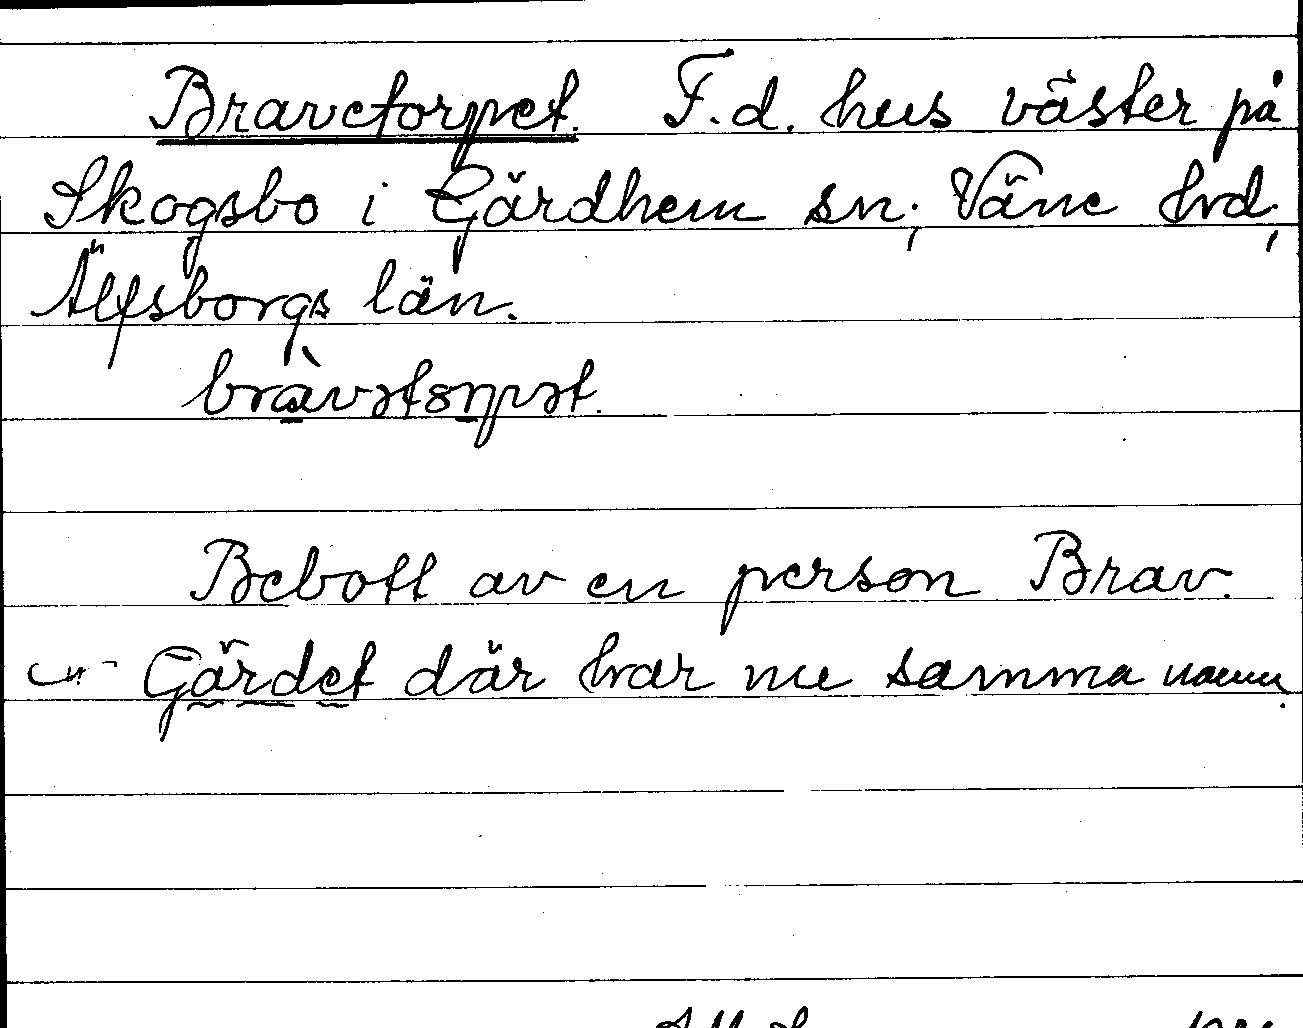 Bravetorpet. F.d. hus väster på
Skogsbo i Gärdhem sn; Väne hd;
Älfsborgs län.
Bebott av en person Brav.
Gärdet där har nu samma namn.